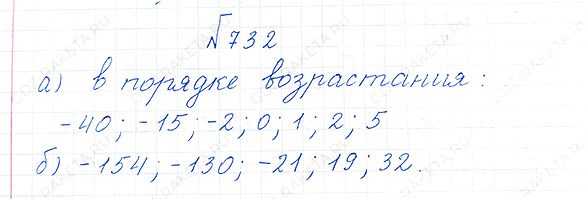 №732
а) в порядке возрастания:
-40; -15; -2; 0; 1; 2; 5
б) -154; -130; -21; 19; 32.